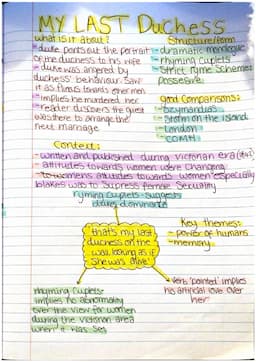 MY LAST Duchess
what is it about?
- duke points out the portrait
of the duchess to his wife
- duke was angered by
duchess' behaviour. saw
it as flirous towards other men
- implies he murdered her
- reader discovers the guest
was there to arrange the
next marriage
Structure/form
- dramatic monologue
- rhyming cuplets
- Strict ryme Schemes
possesive
good comparisons:
- Ozymandias
- Storm on the island
- London
- COMH
Context:
- written and published during victorian era
- attitudes towards women were changing
- to womens attitudes towards women especially
blakes was to supress female Sexuality
ryming cuplets - suggest
dukes dominance
'that's my last
duchess on the
wall looking as if
She was alive'
Key themes:
- power of humans
- memory
rhyming cuplets
implies no abnormality
over the view for women
during the victorian area
when it was set
Verb 'painted' implies
his artificial love over
her